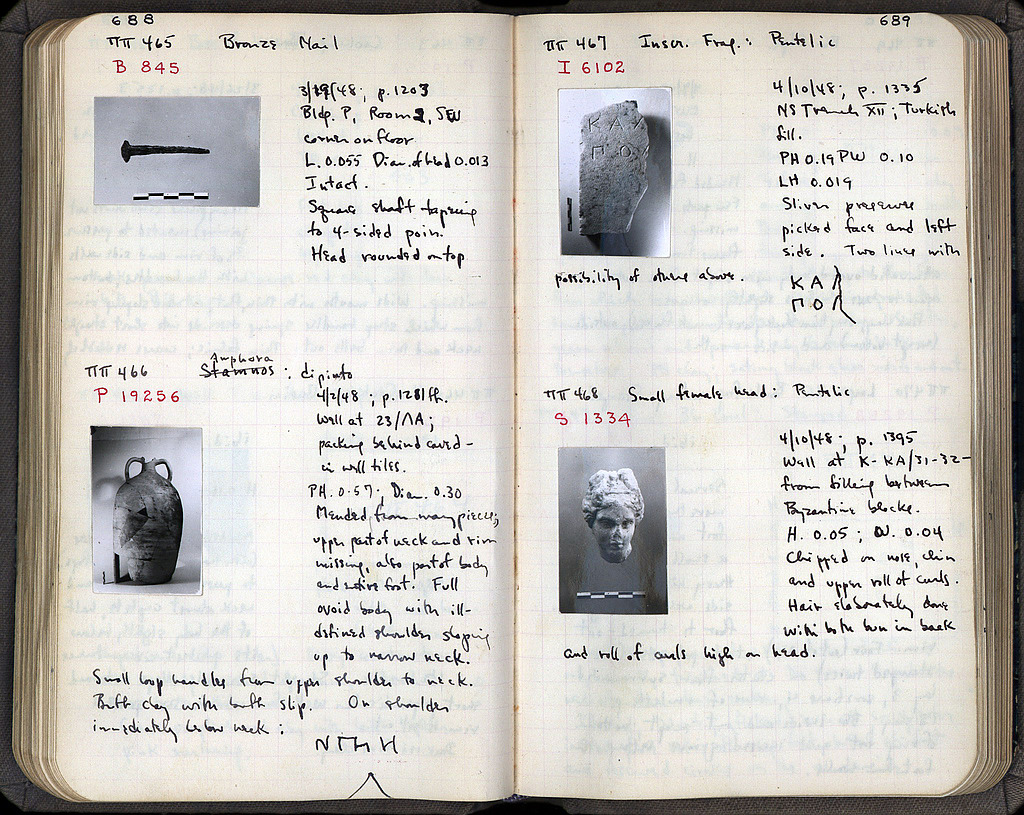 688
ΠΠ 465 Bronze Nail
B 845
3/19/48; p. 1203
Bldg. P, Room 2, SW
corner on floor
L. 0.055 Diam. of head 0.013
Intact.
Square shaft tapering
to 4-sided point.
Head rounded on top
ΠΠ 466 Stamnos : dipinto
Amphora
P 19256
4/2/48; p. 1281 ff.
Well at 23/ΛΑ;
packing behind caved-
in well tiles.
PH. 0.57; Diam. 0.30
Mended from many pieces;
upper part of neck and rim
missing, also part of body
and entire foot. Full
ovoid body with ill-
defined shoulder sloping
up to narrow neck.
Small loop handles from upper shoulder to neck.
Buff clay with buff slip. On shoulder
immediately below neck:
689
ΠΠ 467 Inscr. Frag.: Pentelic
I 6102
4/10/48; p. 1335
NS Trench XII; Turkish
fill.
PH 0.19 PW 0.10
LH 0.019
Sliver preserves
picked face and left
side. Two lines with
possibility of others above.
ΚΑΛ
ΠΟΛ
ΠΠ 468 Small female head: Pentelic
S 1334
4/10/48; p. 1395
Well at Κ-ΚΑ/31-32-
from filling between
Byzantine blocks.
H. 0.05; W. 0.04
Chipped on nose, chin
and upper roll of curls.
Hair elaborately done
with bun in back
and roll of curls high on head.
ΚΑΛ
ΠΟ